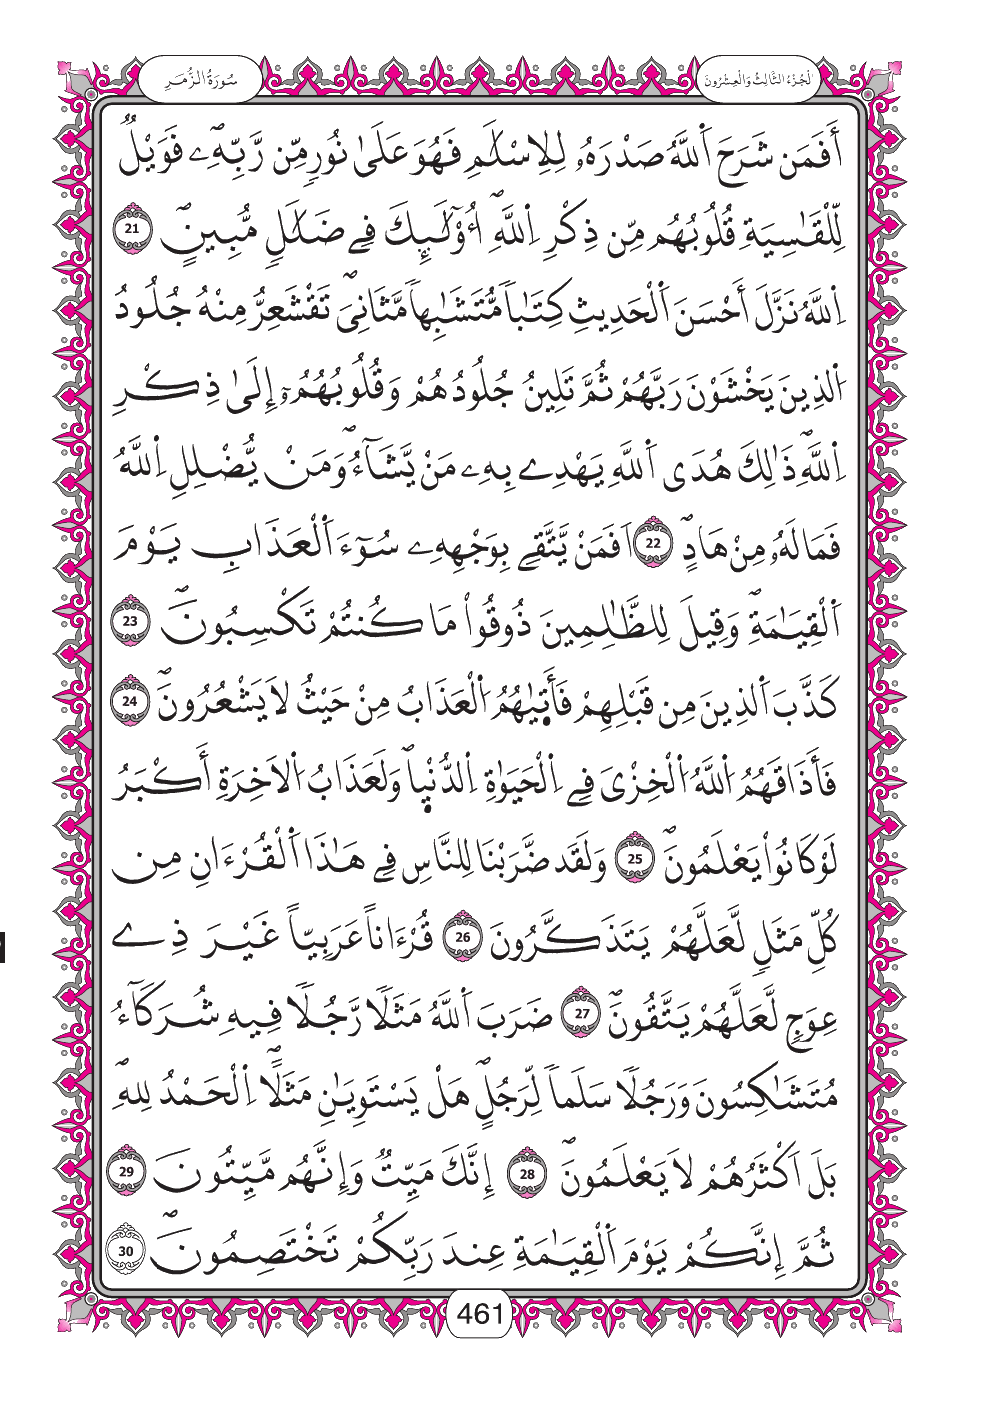 سُورَةُ الزُّمَرِ
الْجُزْءُ الثَّالِثُ وَالْعِشْرُونَ
أَفَمَن شَرَحَ اَ۬للَّهُ صَدْرَهُۥ لِلِاسْلَٰمِ فَهُوَ عَلَىٰ نُورٖ مِّن رَّبِّهِۦۖ فَوَيْلٞ
لِّلْقَٰسِيَةِ قُلُوبُهُم مِّن ذِكْرِ اِ۬للَّهِۖ أُوْلَٰٓئِكَ فِے ضَلَٰلٖ مُّبِينٍۖ 21
اِ۬للَّهُ نَزَّلَ أَحْسَنَ اَ۬لْحَدِيثِ كِتَٰباٗ مُّتَشَٰبِهاٗ مَّثَانِيَۖ تَقْشَعِرُّ مِنْهُ جُلُودُ
اُ۬لذِينَ يَخْشَوْنَ رَبَّهُمْ ثُمَّ تَلِينُ جُلُودُهُمْ وَقُلُوبُهُمُۥٓ إِلَىٰ ذِكْرِ
اِ۬للَّهِۖ ذَٰلِكَ هُدَى اَ۬للَّهِ يَهْدِے بِهِۦ مَنْ يَّشَآءُۖ وَمَنْ يُّضْلِلِ اِ۬للَّهُ
فَمَا لَهُۥ مِنْ هَادٍۖ 22 اَفَمَنْ يَّتَّقِے بِوَجْهِهِۦ سُوٓءَ اَ۬لْعَذَابِ يَوْمَ
اَ۬لْقِيَٰمَةِۖ وَقِيلَ لِلظَّٰلِمِينَ ذُوقُواْ مَا كُنتُمْ تَكْسِبُونَۖ 23
كَذَّبَ اَ۬لذِينَ مِن قَبْلِهِمْ فَأَت۪ىٰهُمُ اُ۬لْعَذَابُ مِنْ حَيْثُ لَا يَشْعُرُونَۖ 24
فَأَذَاقَهُمُ اُ۬للَّهُ اُ۬لْخِزْيَ فِے اِ۬لْحَيَوٰةِ اِ۬لدُّنْي۪اۖ وَلَعَذَابُ اُ۬لَاخِرَةِ أَكْبَرُ
لَوْ كَانُواْ يَعْلَمُونَۖ 25 وَلَقَد ضَّرَبْنَا لِلنَّاسِ فِے هَٰذَا اَ۬لْقُرْءَانِ مِن
كُلِّ مَثَلٖ لَّعَلَّهُمْ يَتَذَكَّرُونَ 26 قُرْءَاناً عَرَبِيّاً غَيْرَ ذِے
عِوَجٖ لَّعَلَّهُمْ يَتَّقُونَۖ 27 ضَرَبَ اَ۬للَّهُ مَثَلٗا رَّجُلٗا فِيهِ شُرَكَآءُ
مُتَشَٰكِسُونَ وَرَجُلٗا سَلَماٗ لِّرَجُلٍۖ هَلْ يَسْتَوِيَٰنِ مَثَلًاۖ اِ۬لْحَمْدُ لِلهِۖ
بَلَ اَكْثَرُهُمْ لَا يَعْلَمُونَۖ 28 إِنَّكَ مَيِّتٞ وَإِنَّهُم مَّيِّتُونَ 29
ثُمَّ إِنَّكُمْ يَوْمَ اَ۬لْقِيَٰمَةِ عِندَ رَبِّكُمْ تَخْتَصِمُونَۖ 30
461